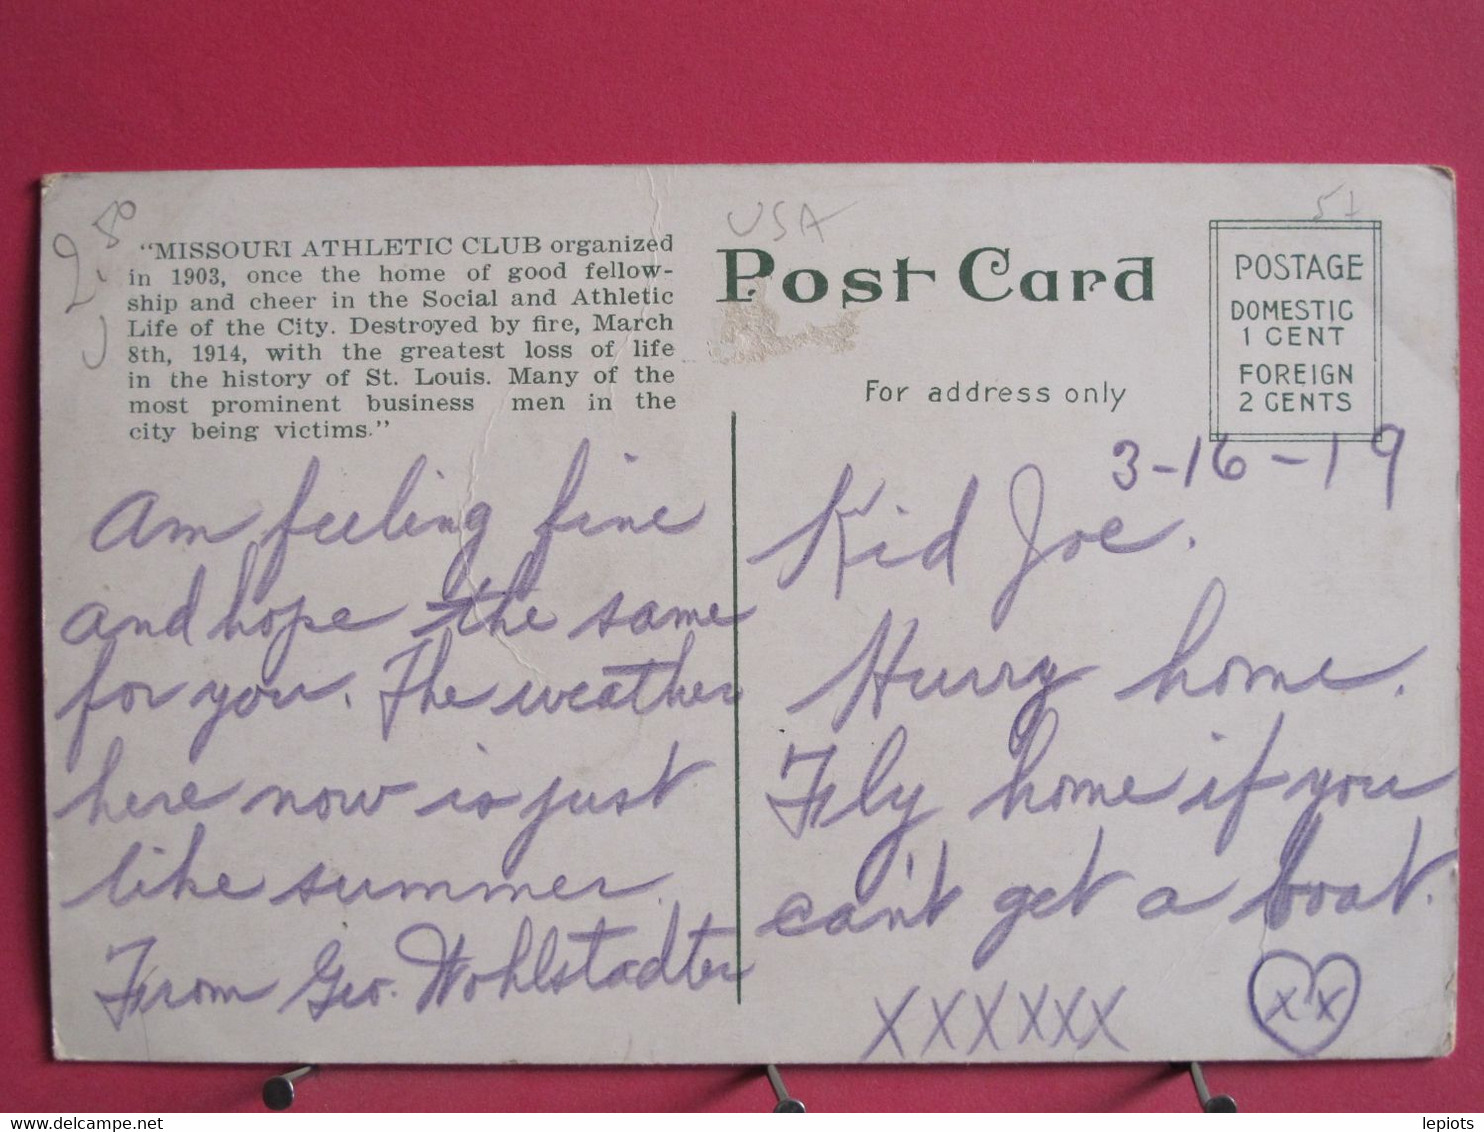 2,50
"MISSOURI ATHLETIC CLUB organized
in 1903, once the home of good fellow-
ship and cheer in the Social and Athletic
Life of the City. Destroyed by fire, March
8th, 1914, with the greatest loss of life
in the history of St. Louis. Many of the
most prominent business men in the
city being victims."
Am feeling fine
and hope the same
for you. The weather
here now is just
like summer.
From Geo. Wohlstadter
USA
Post Card
For address only
51
POSTAGE
DOMESTIC
1 CENT
FOREIGN
2 CENTS
3-16-19
Kid Joe.
Hurry home.
Fly home if you
can't get a boat.
XXXXXX
XX
delcampe.net
lepiots